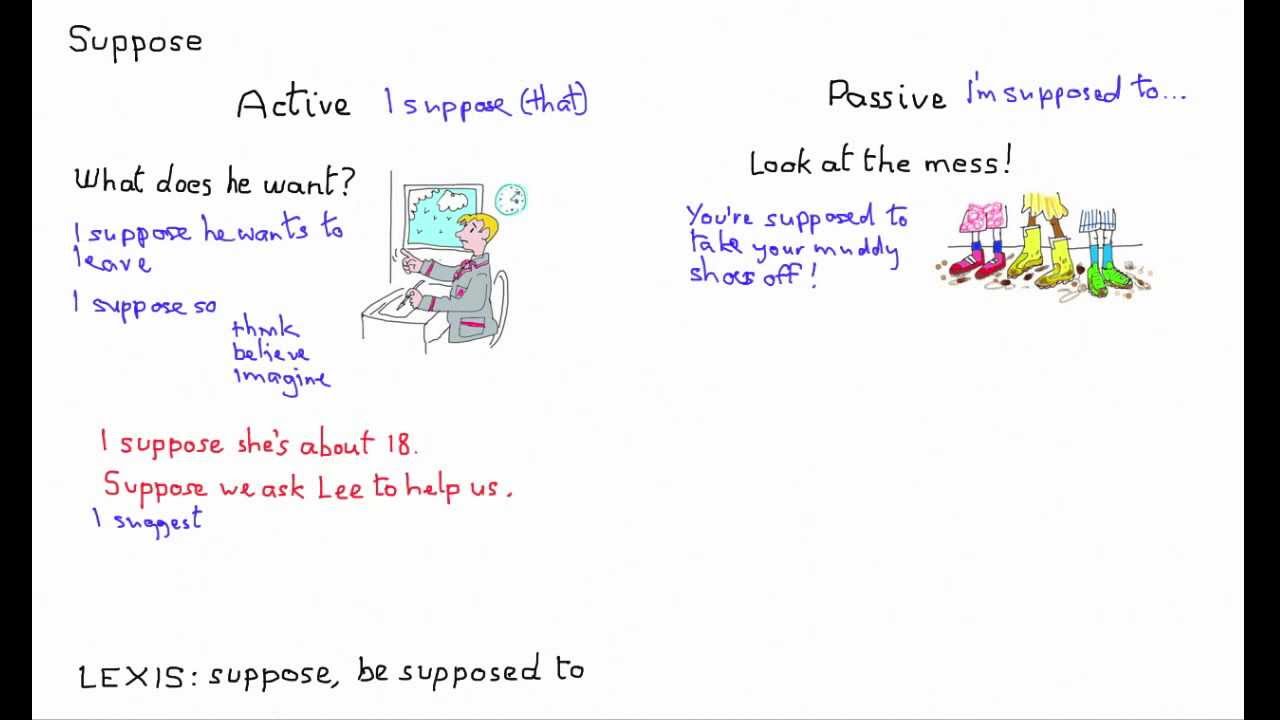 Suppose
Active I suppose (that)
What does he want?
I suppose he wants to
leave
I suppose so
think
believe
imagine
I suppose she's about 18.
Suppose we ask Lee to help us.
I suggest
Passive I'm supposed to...
Look at the mess!
You're supposed to
take your muddy
shoes off!
LEXIS: suppose, be supposed to